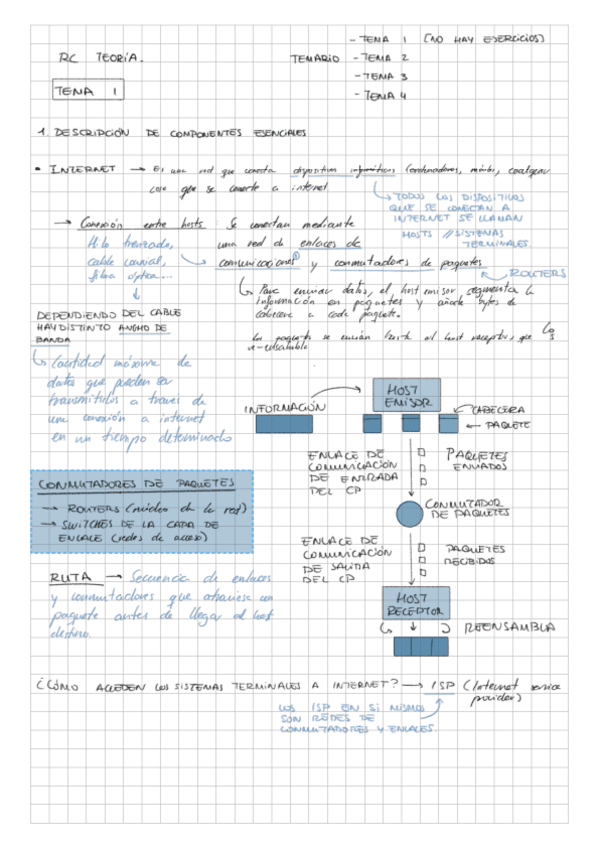 - TEMA 1 (NO HAY EJERCICIOS)
RC TEORÍA.
TEMARIO - TEMA 2
- TEMA 3
TEMA 1
- TEMA 4
1. DESCRIPCIÓN DE COMPONENTES ESENCIALES
• INTERNET → Es una red que conecta dispositivos informáticos (ordenadores, móviles, cualquier
cosa que se conecte a internet
TODOS LOS DISPOSITIVOS
QUE SE CONECTAN A
INTERNET SE LLAMAN
HOSTS // SISTEMAS
TERMINALES.
→ Conexión entre hosts: Se conectan mediante
una red de enlaces de
comunicaciones① y conmutadores de paquetes
ROUTERS
Hilo trenzado,
cable coaxial,
fibra óptica...
Para enviar datos, el host emisor segmenta la
información en paquetes y añade bytes de
cabecera a cada paquete.
Los paquetes se envían hasta el host receptor, que los
re-ensambla
DEPENDIENDO DEL CABLE
HAY DISTINTO ANCHO DE
BANDA
Cantidad máxima de
datos que pueden ser
transmitidos a través de
una conexión a internet
en un tiempo determinado
HOST
EMISOR
INFORMACIÓN
← CABECERA
← PAQUETE
ENLACE DE
COMUNICACIÓN
DE ENTRADA
DEL CP
PAQUETES
ENVIADOS
CONMUTADOR
DE PAQUETES
ENLACE DE
COMUNICACIÓN
DE SALIDA
DEL CP
PAQUETES
RECIBIDOS
HOST
RECEPTOR
REENSAMBLA
CONMUTADORES DE PAQUETES
→ ROUTERS (núcleo de la red)
→ SWITCHES DE LA CAPA DE
ENLACE (redes de acceso)
RUTA → Secuencia de enlaces
y conmutadores que atraviesa un
paquete antes de llegar al host
destino.
¿CÓMO ACCEDEN LOS SISTEMAS TERMINALES A INTERNET? → ISP (Internet service
provider)
LOS ISP EN SI MISMOS
SON REDES DE
CONMUTADORES Y ENLACES.